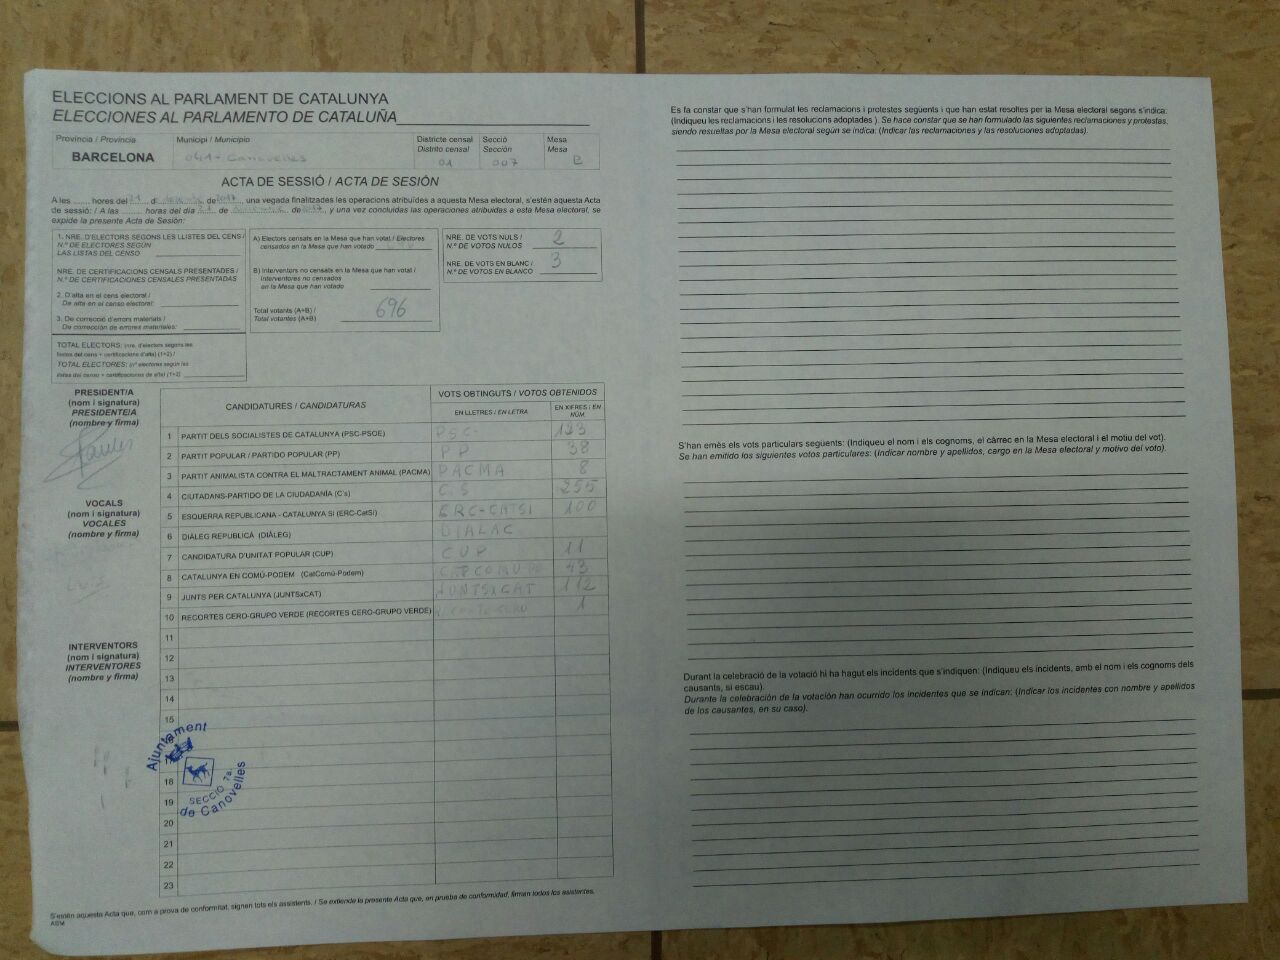 ELECCIONS AL PARLAMENT DE CATALUNYA
ELECCIONES AL PARLAMENTO DE CATALUÑA
Província / Provincia
BARCELONA
Municipi / Municipio
041-Canovelles
Districte censal
Distrito censal
01
Secció
Sección
007
Mesa
Mesa
B
ACTA DE SESSIÓ / ACTA DE SESIÓN
A les ....... hores del 21 d' de 2017, una vegada finalitzades les operacions atribuïdes a aquesta Mesa electoral, s'estén aquesta Acta
de sessió: / A las ........ horas del día 21 de de 2017, y una vez concluidas las operaciones atribuidas a esta Mesa electoral, se
expide la presente Acta de Sesión:
1. NRE. D'ELECTORS SEGONS LES LLISTES DEL CENS /
N.º DE ELECTORES SEGÚN
LAS LISTAS DEL CENSO
NRE. DE CERTIFICACIONS CENSALS PRESENTADES /
N.º DE CERTIFICACIONES CENSALES PRESENTADAS
2. D'alta en el cens electoral /
De alta en el censo electoral:
3. De correcció d'errors materials /
De corrección de errores materiales:
TOTAL ELECTORS: (nre. d'electors segons les
llistes del cens + certificacions d'alta) (1+2) /
TOTAL ELECTORES: (nº electores según las
listas del censo + certificaciones de alta) (1+2)
A) Electors censats en la Mesa que han votat / Electores
censados en la Mesa que han votado
B) Interventors no censats en la Mesa que han votat /
Interventores no censados
en la Mesa que han votado
Total votants (A+B) /
Total votantes (A+B)
696
NRE. DE VOTS NULS /
N.º DE VOTOS NULOS
2
NRE. DE VOTS EN BLANC /
N.º DE VOTOS EN BLANCO
3
PRESIDENT/A
(nom i signatura)
PRESIDENTE/A
(nombre y firma)
VOCALS
(nom i signatura)
VOCALES
(nombre y firma)
INTERVENTORS
(nom i signatura)
INTERVENTORES
(nombre y firma)
CANDIDATURES / CANDIDATURAS
VOTS OBTINGUTS / VOTOS OBTENIDOS
EN LLETRES / EN LETRA
EN XIFRES / EN NÚM.
1 PARTIT DELS SOCIALISTES DE CATALUNYA (PSC-PSOE) PSC- 123
2 PARTIT POPULAR / PARTIDO POPULAR (PP) PP 38
3 PARTIT ANIMALISTA CONTRA EL MALTRACTAMENT ANIMAL (PACMA) PACMA 8
4 CIUTADANS-PARTIDO DE LA CIUDADANÍA (C's) C.S 255
5 ESQUERRA REPUBLICANA - CATALUNYA SÍ (ERC-CatSí) ERC-CATSI 100
6 DIÀLEG REPUBLICÀ (DIÀLEG) DIALAC
7 CANDIDATURA D'UNITAT POPULAR (CUP) CUP 11
8 CATALUNYA EN COMÚ-PODEM (CatComú-Podem) 43
9 JUNTS PER CATALUNYA (JUNTSxCAT) JUNTSxCAT 112
10 RECORTES CERO-GRUPO VERDE (RECORTES CERO-GRUPO VERDE) 1
11
12
13
14
15
18
19
20
21
22
23
Ajuntament
SECCIÓ 7a.
de Canovelles
S'estén aquesta Acta que, com a prova de conformitat, signen tots els assistents. / Se extiende la presente Acta que, en prueba de conformidad, firman todos los asistentes.
Es fa constar que s'han formulat les reclamacions i protestes següents i que han estat resoltes per la Mesa electoral segons s'indica:
(Indiqueu les reclamacions i les resolucions adoptades ). Se hace constar que se han formulado las siguientes reclamaciones y protestas,
siendo resueltas por la Mesa electoral según se indica: (Indicar las reclamaciones y las resoluciones adoptadas).
S'han emès els vots particulars següents: (Indiqueu el nom i els cognoms, el càrrec en la Mesa electoral i el motiu del vot).
Se han emitido los siguientes votos particulares: (Indicar nombre y apellidos, cargo en la Mesa electoral y motivo del voto).
Durant la celebració de la votació hi ha hagut els incidents que s'indiquen: (Indiqueu els incidents, amb el nom i els cognoms dels
causants, si escau).
Durante la celebración de la votación han ocurrido los incidentes que se indican: (Indicar los incidentes con nombre y apellidos
de los causantes, en su caso).